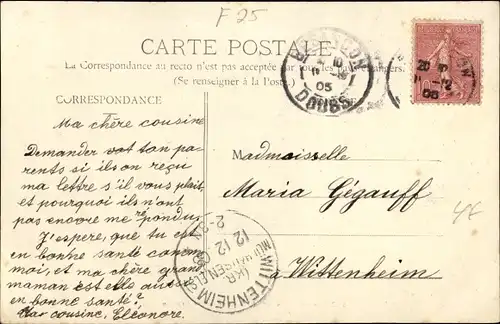 F 25
CARTE POSTALE
La Correspondance au recto n'est pas acceptée par tous les pays étrangers.
(Se renseigner à la Poste)
CORRESPONDANCE
Ma chère cousine
Demander vot ton pa-
rents si ils on reçu
ma lettre s'il vous plait,
et pourquoi ils n'ont
pas encore me répondu,
J'espère, que tu est
en bonne santé comme
moi, et ma chère grand
maman est elle aussi
en bonne santé?
Car cousine, Eléonore.
Mademoiselle
Maria Gégauff
à Wittenheim
BESANÇON
05
DOUBS
WITTENHEIM
(KR. MÜLHAUSEN ELS.)
12 12
2-3 N
10